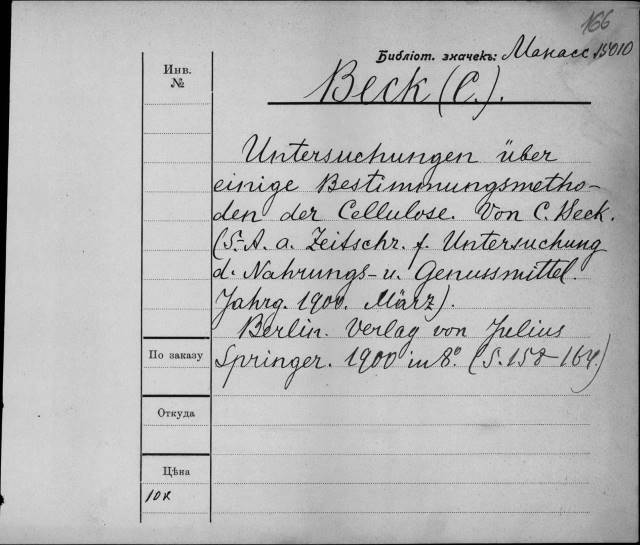 166
Библіот. значекъ: Манасс 15010
Инв.
№
Beck (C.).
Untersuchungen über
einige Bestimmungsmetho-
den der Cellulose. Von C. Beck.
(S.-A. a. Zeitschr. f. Untersuchung
d. Nahrungs- u. Genussmittel.
Jahrg. 1900. März).
Berlin. Verlag von Julius
Springer. 1900 in 8°. (S. 158-164.)
По заказу
Откуда
Цѣна
10к